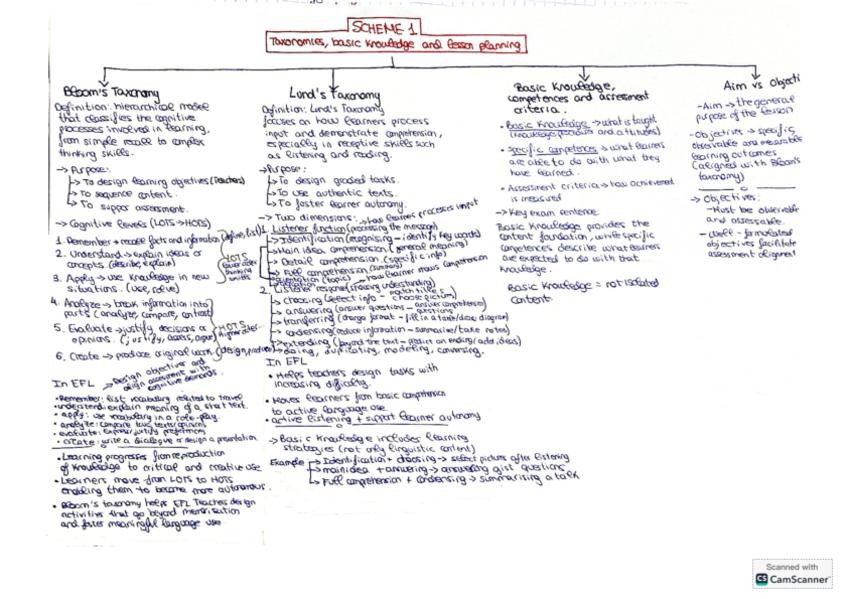 SCHEME 1
Taxonomies, basic knowledge and lesson planning
Bloom's Taxonomy
Definition: hierarchical model
that classifies the cognitive
processes involved in learning,
from simple recall to complex
thinking skills.
→ Purpose:
→ To design learning objectives (Teachers)
→ To sequence content.
→ To support assessment.
→ Cognitive levels (LOTS → HOTS)
1. Remember → recall facts and information (define, list)
2. Understand → explain ideas or
concepts (describe, explain)
3. Apply → use knowledge in new
situations. (use, solve)
LOTS
lower order
thinking
skills
4. Analyze → break information into
parts (analyze, compare, contrast)
5. Evaluate → justify decisions or
opinions. (justify, assess, argue)
6. Create → produce original work (design, produce)
HOTS
Higher order
In EFL
→ Design objectives and
align assessment with
cognitive demands.
• Remember: list vocabulary related to travel
• understand: explain meaning of a short text.
• apply: use vocabulary in a role-play.
• analyze: compare two texts/opinions
• evaluate: express/justify preferences
• create: write a dialogue or design a presentation
• Learning progresses from reproduction
of knowledge to critical and creative use
• Learners move from LOTS to HOTS
enabling them to become more autonomous.
• Bloom's taxonomy helps EFL Teachers design
activities that go beyond memorisation
and foster meaningful language use
Lund's Taxonomy
Definition: Lund's Taxonomy
focuses on how learners process
input and demonstrate comprehension,
especially in receptive skills such
as listening and reading.
→ Purpose:
→ To design graded tasks.
→ To use authentic texts.
→ To foster learner autonomy.
→ Two dimensions:
→ how learners processes input
1. Listener function (processing the message)
→ Identification (recognising - identify key words)
→ Main idea comprehension (general meaning)
→ Detail comprehension (specific info)
→ Full comprehension (summary)
→ orientation (topic)
→ how learner shows comprehension
2. Listener response (showing understanding)
→ choosing (select info - choose picture)
match titles
→ answering (answer questions - answer comprehension)
questions
→ transferring (change format - fill in a table/draw diagram)
→ condensing (reduce information - summarise/take notes)
→ extending (beyond the text - predict an ending/add ideas)
→ doing, duplicating, modeling, conversing.
In EFL
• Helps teachers design tasks with
increasing difficulty.
• Moves learners from basic comprehension
to active language use
• active listening + support learner autonomy
→ Basic knowledge includes learning
strategies (not only linguistic content)
Example
→ Identification + choosing → select pictures after listening
→ main idea + answering → answering gist questions
→ Full comprehension + condensing → summarising a talk
Basic Knowledge,
competences and assessment
criteria.
• Basic knowledge → what is taught
(knowledge and attitudes)
• Specific competences → what learners
are able to do with what they
have learned.
• Assessment criteria → how achievement
is measured
→ Key exam sentence:
Basic knowledge provides the
content foundation, while specific
competences describe what learners
are expected to do with that
knowledge.
Basic knowledge = not isolated
content.
Aim vs Objecti
- Aim → the general
purpose of the lesson
- Objectives → specific,
observable and measurable
learning outcomes
(aligned with Bloom's
taxonomy)
→ Objectives:
- Must be observable
and assessable.
- Well-formulated
objectives facilitate
assessment alignment
Scanned with
CS CamScanner